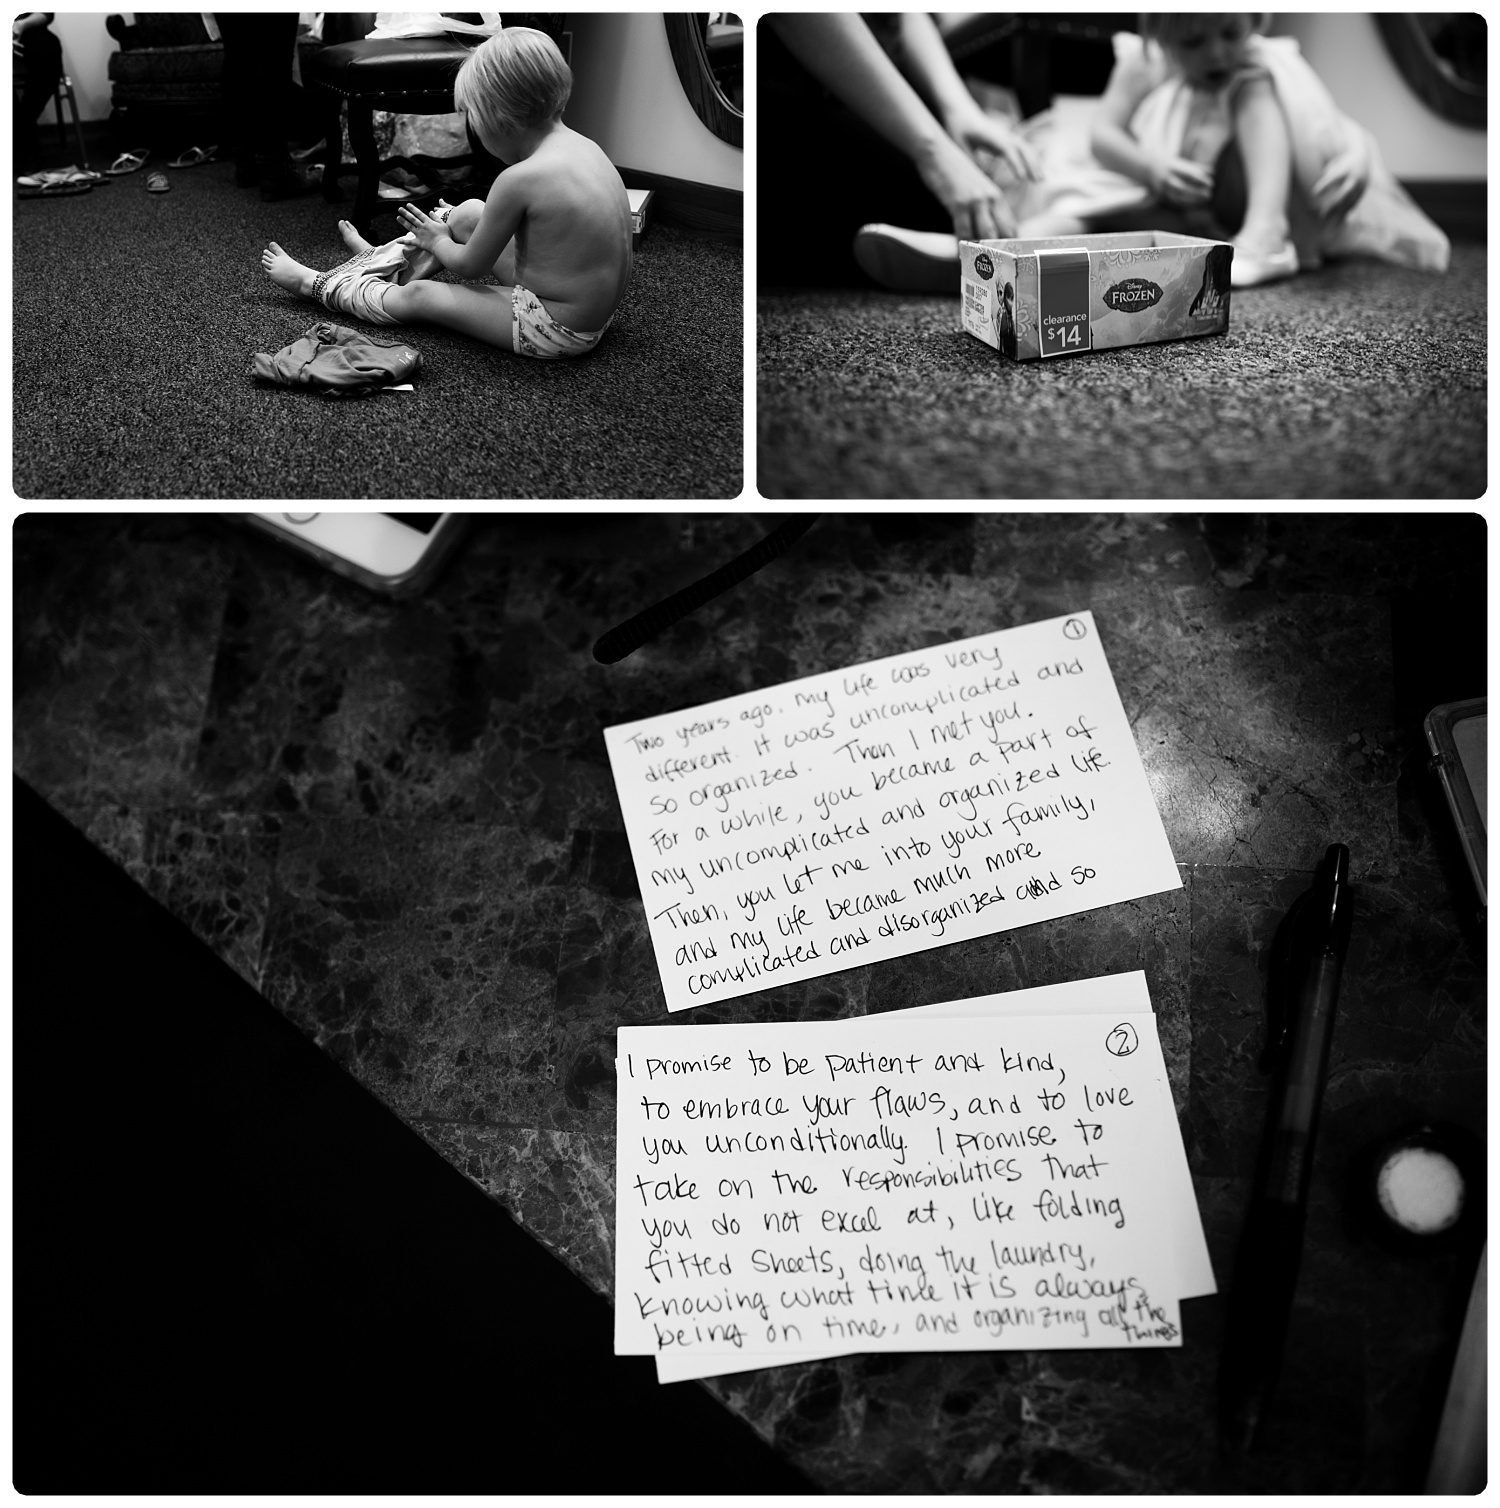 Disney
FROZEN
clearance
$14
Disney
FROZEN
1
Two years ago, my life was very
different. It was uncomplicated and
so organized. Then I met you.
For a while, you became a part of
my uncomplicated and organized life.
Then, you let me into your family,
and my life became much more
complicated and disorganized and so
2
I promise to be patient and kind,
to embrace your flaws, and to love
you unconditionally. I promise to
take on the responsibilities that
you do not excel at, like folding
fitted sheets, doing the laundry,
knowing what time it is always,
being on time, and organizing all the
things